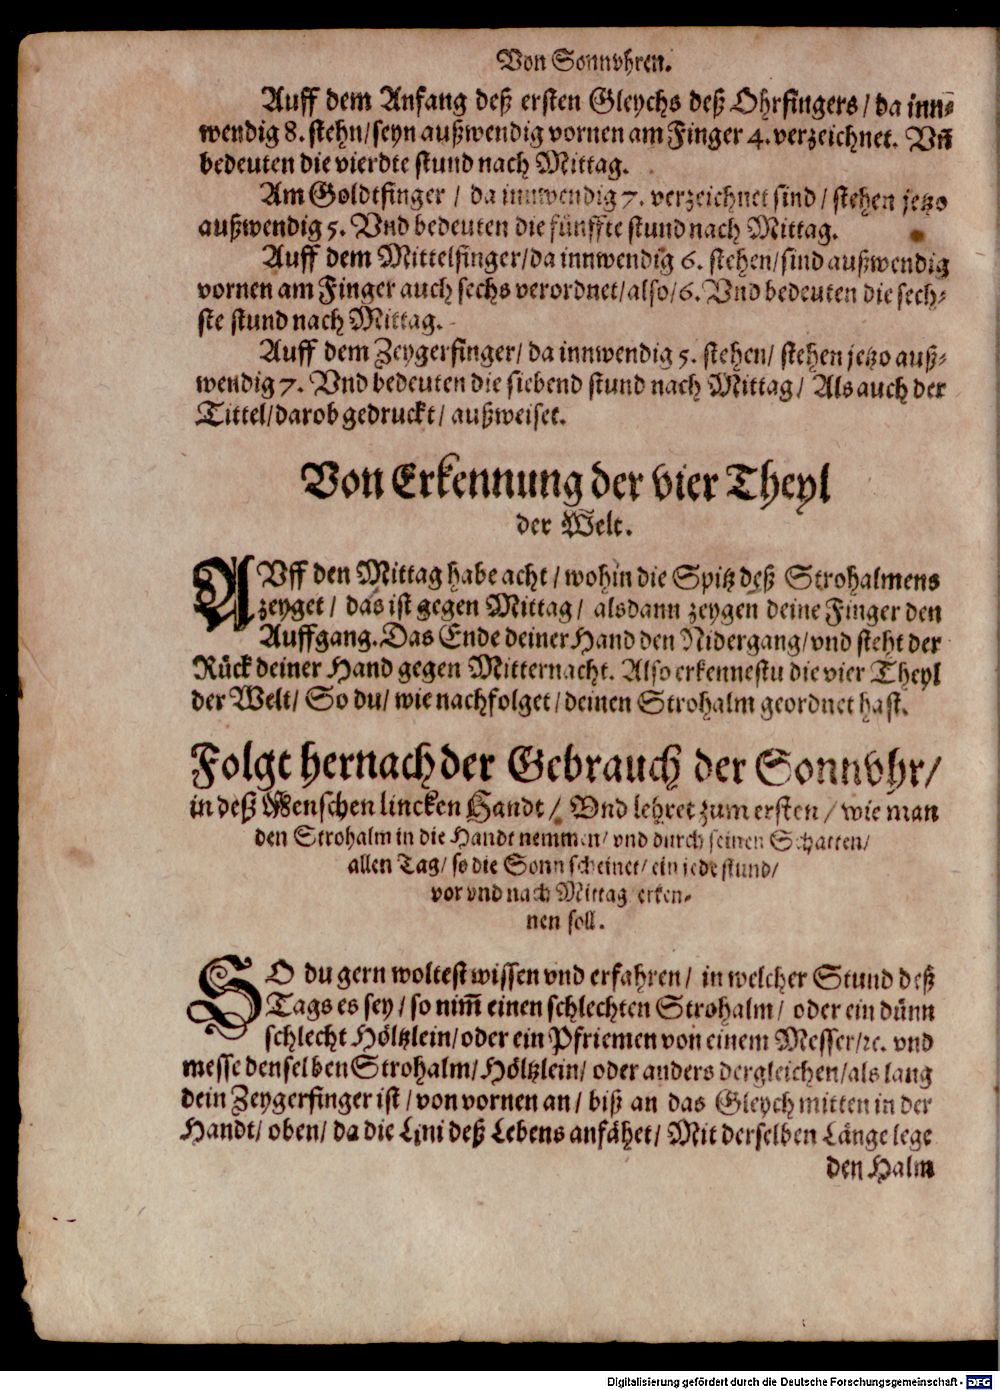 Von Sonnvhren.
Auff dem Anfang deß ersten Gleychs deß Ohrfingers / da inn=
wendig 8. stehn / seyn außwendig vornen am Finger 4. verzeichnet. Vñ
bedeuten die vierdte stund nach Mittag.
Am Goldtfinger / da innwendig 7. verzeichnet sind / stehen jetzo
außwendig 5. Vnd bedeuten die fünffte stund nach Mittag.
Auff dem Mittelfinger / da innwendig 6. stehen / sind außwendig
vornen am Finger auch sechs verordnet / also / 6. Vnd bedeuten die sech=
ste stund nach Mittag.
Auff dem Zeygerfinger / da innwendig 5. stehen / stehen jetzo auß=
wendig 7. Vnd bedeuten die siebend stund nach Mittag / Als auch der
Tittel / darob gedruckt / außweiset.
Von Erkennung der vier Theyl
der Welt.
AVff den Mittag habe acht / wohin die Spitz deß Strohalmens
zeyget / das ist gegen Mittag / alsdann zeygen deine Finger den
Auffgang. Das Ende deiner Hand den Nidergang / vnd steht der
Rück deiner Hand gegen Mitternacht. Also erkennestu die vier Theyl
der Welt / So du / wie nachfolget / deinen Strohalm geordnet hast.
Folgt hernach der Gebrauch der Sonnvhr /
in deß Menschen lincken Handt / Vnd lehret zum ersten / wie man
den Strohalm in die Handt nemmen / vnd durch seinen Schatten /
allen Tag / so die Sonn scheinet / ein jede stund /
vor vnd nach Mittag erken=
nen soll.
SO du gern woltest wissen vnd erfahren / in welcher Stund deß
Tags es sey / so nim̃ einen schlechten Strohalm / oder ein dünn
schlecht Höltzlein / oder ein Pfriemen von einem Messer / ꝛc. vnd
messe denselben Strohalm / Höltzlein / oder anders dergleichen / als lang
dein Zeygerfinger ist / von vornen an / biß an das Gleych mitten in der
Handt / oben / da die Lini deß Lebens anfähet / Mit derselben Länge lege
den Halm
Digitalisierung gefördert durch die Deutsche Forschungsgemeinschaft - DFG